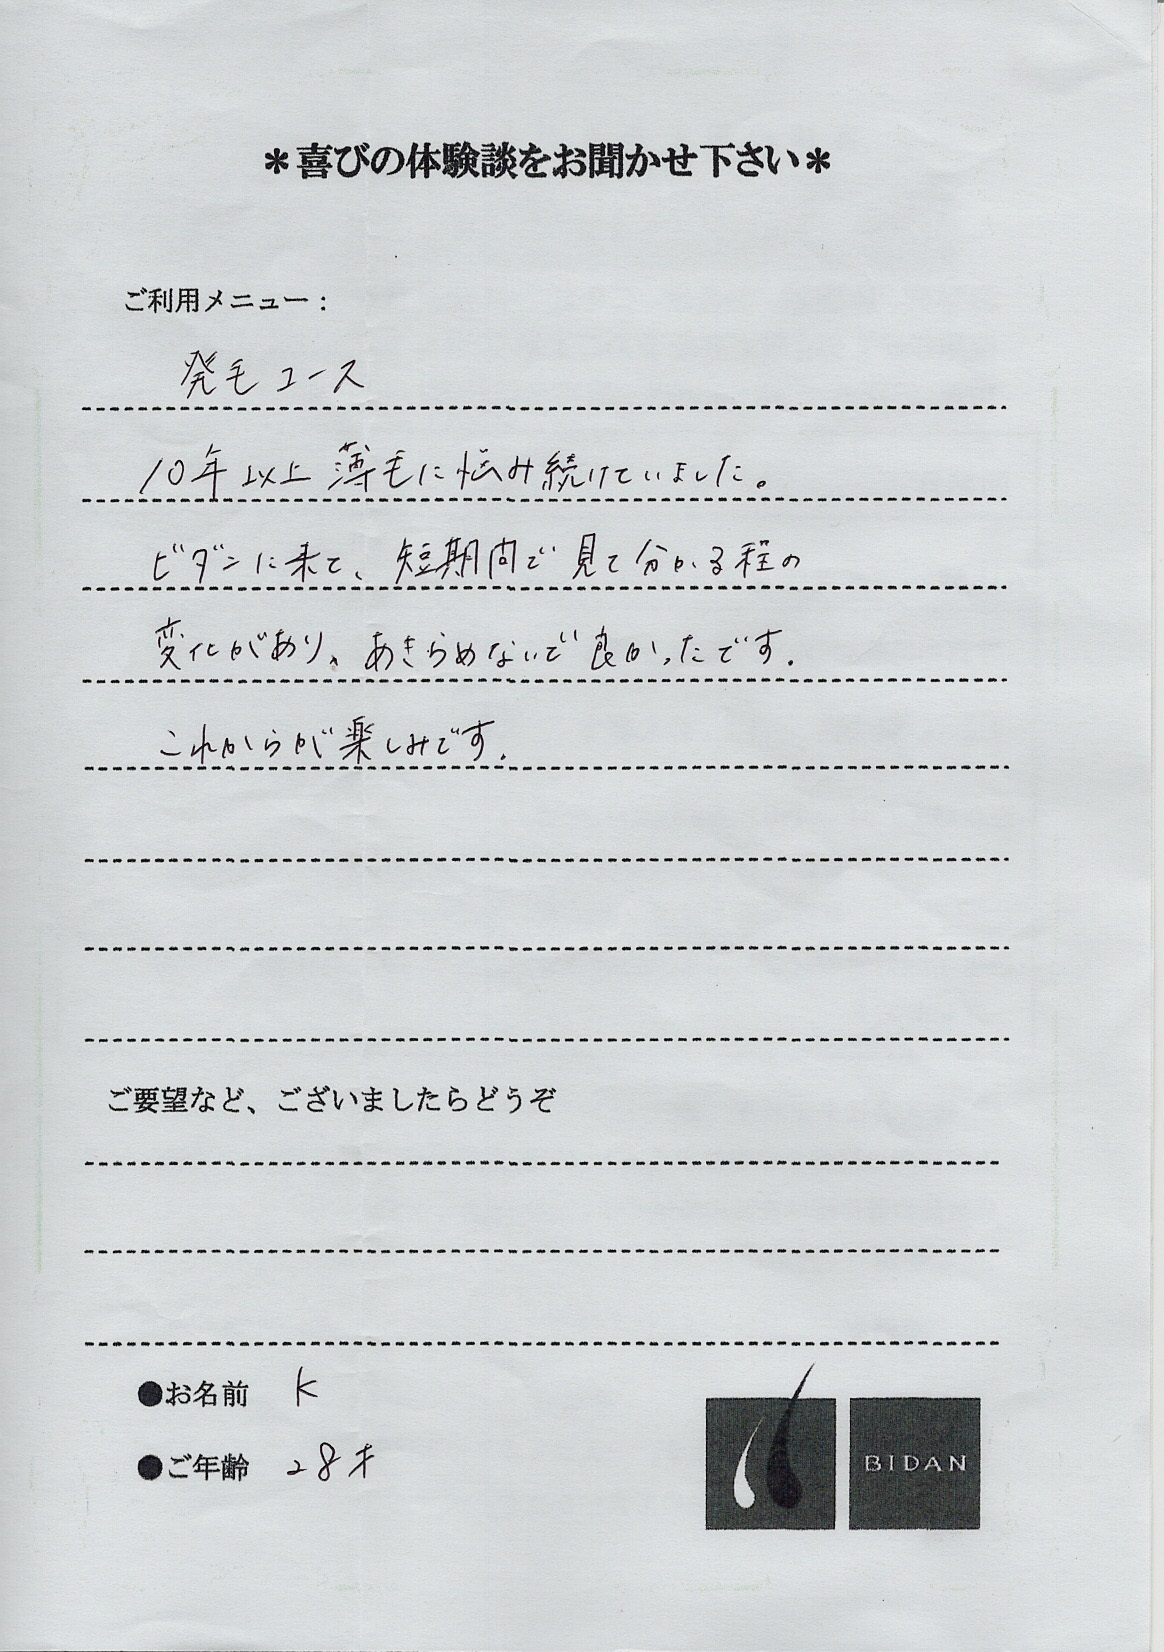 ＊喜びの体験談をお聞かせ下さい＊
ご利用メニュー：
発毛コース
10年以上薄毛に悩み続けていました。
ビダンに来て、短期間で見て分かる程の
変化があり、あきらめないで良かったです.
これからが楽しみです.
ご要望など、ございましたらどうぞ
●お名前 K
●ご年齢 28才
BIDAN